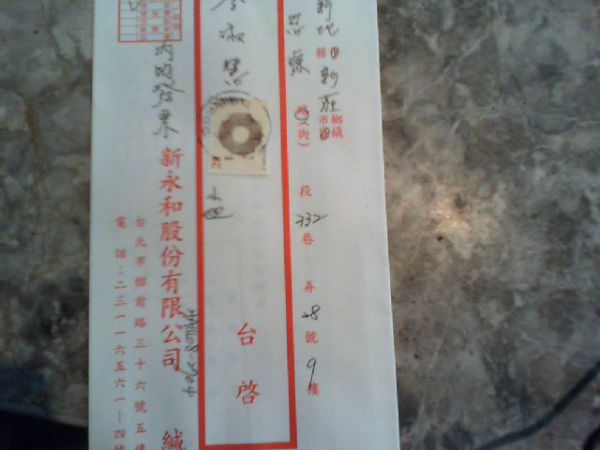 新北市新莊
縣 市區 鄉鎮
思源 路(街) 段 332 巷 弄 28 號 9 樓
李淑慧
台啓
內附發票
新永和股份有限公司 緘
台北市館前路三十六號五樓
電話:二三一一六五六一-四號